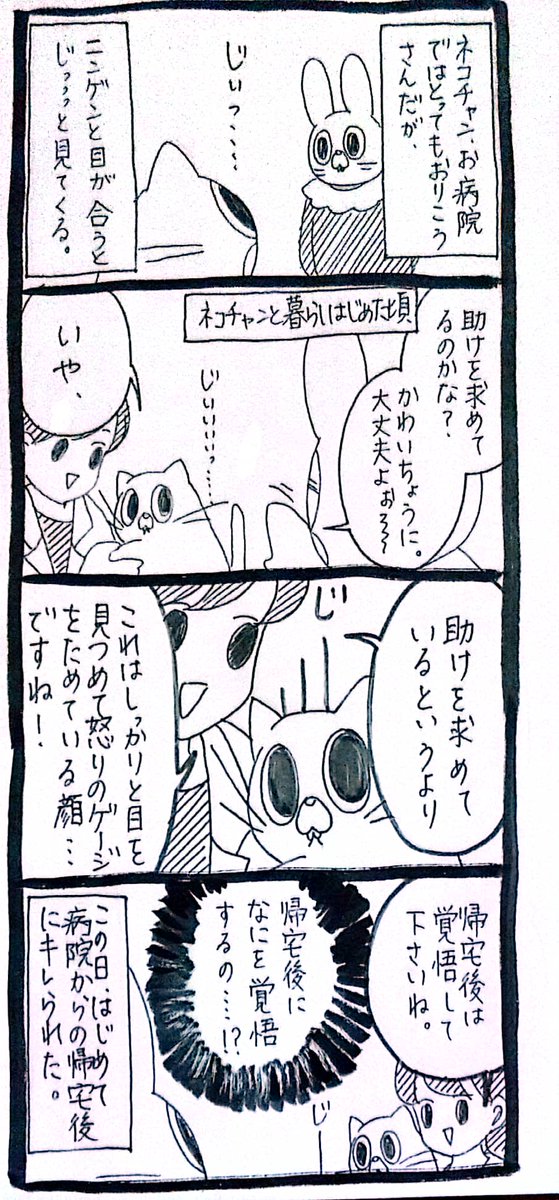 ネコチャン、お病院
ではとってもおりこう
さんだが、
じぃっ・・・・
ニンゲンと目が合うと
じっっっと見てくる。
ネコチャンと暮らしはじめた頃
助けを求めて
るのかな？
かわいちょうに。
大丈夫よぉ～～
じぃぃぃっ・・・
いや、
助けを求めて
いるというより
じ
これはしっかりと目を
見つめて怒りのゲージ
をためている顔・・・
ですね！
帰宅後は
覚悟して
下さいね。
帰宅後に
なにを覚悟
するの・・・・!?
じー
この日、はじめて
病院からの帰宅後
にキレられた。